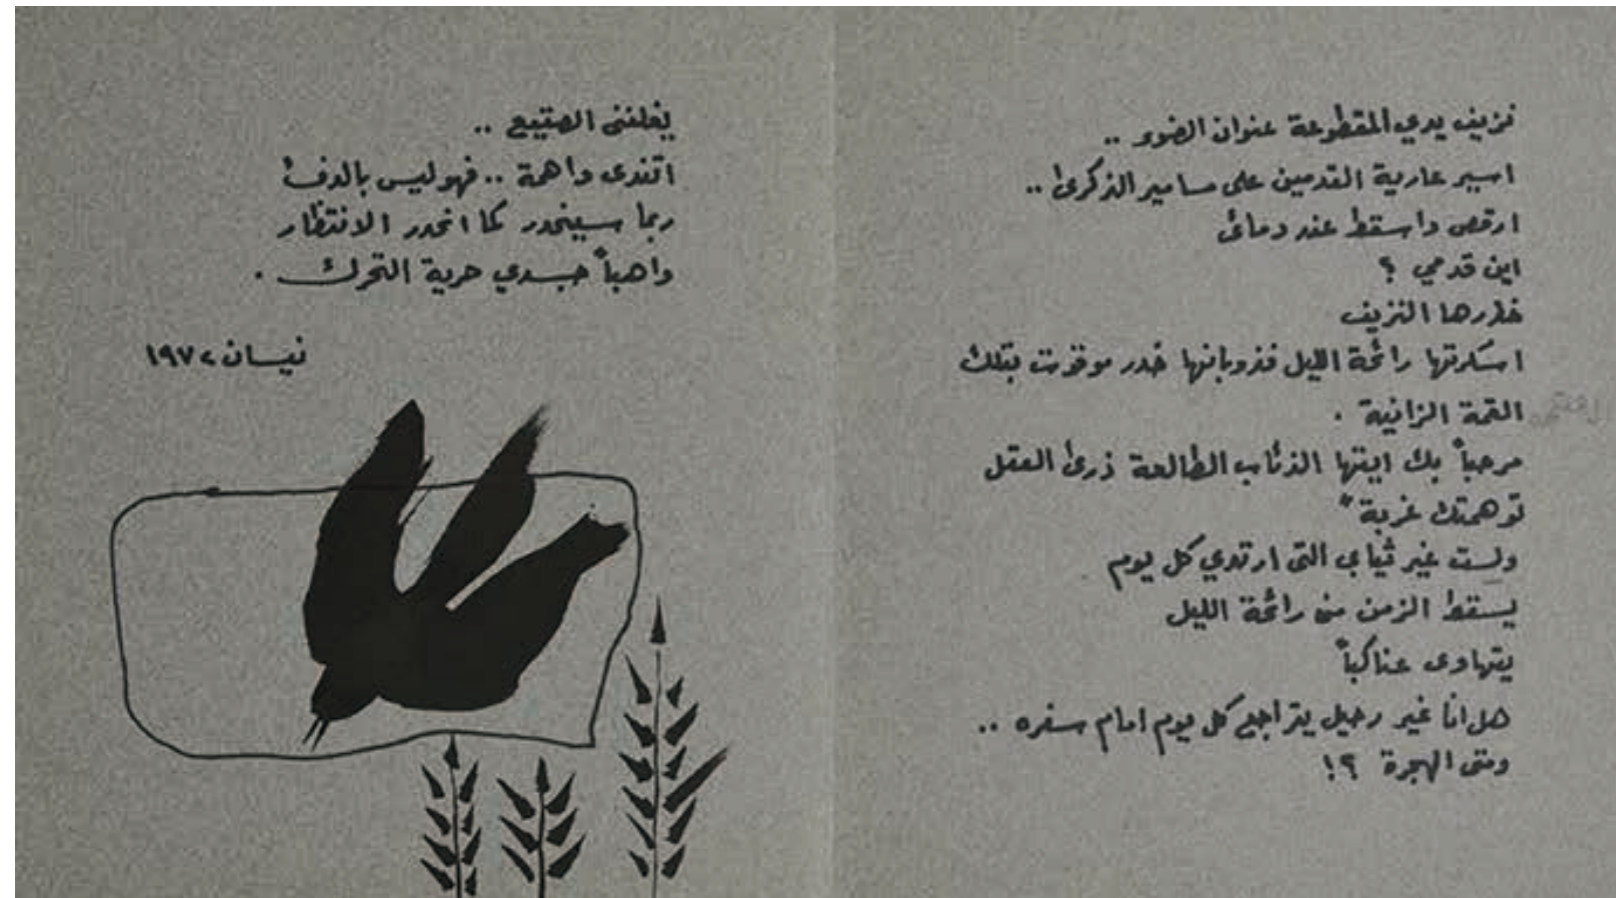 نزيف يدي المقطوعة عنوان الضوء ..
اسير عارية القدمين على مسامير الذكرى ..
ارقص واسقط عند دمائي
اين قدمي ؟
خدرها النزيف
اسكرتها رائحة الليل فذوبانها خدر موقوت بتلك
القمة الزانية .
مرحباً بك ايتها الذئاب الطالعة ذرى العقل
توهمتك غربة
ولست غير ثيابي التي ارتدي كل يوم
يسقط الزمن من رائحة الليل
يتهاوى عناكباً
هل انا غير رحيل يتراجع كل يوم امام سفره ..
ومتى الهجرة ؟!
يغلفني الصقيع ..
اتندى واهمة .. فهو ليس بالدفء
ربما سينحدر كما انحدر الانتظار
واهباً جسدي حرية التحرك .
نيسان ١٩٧٢